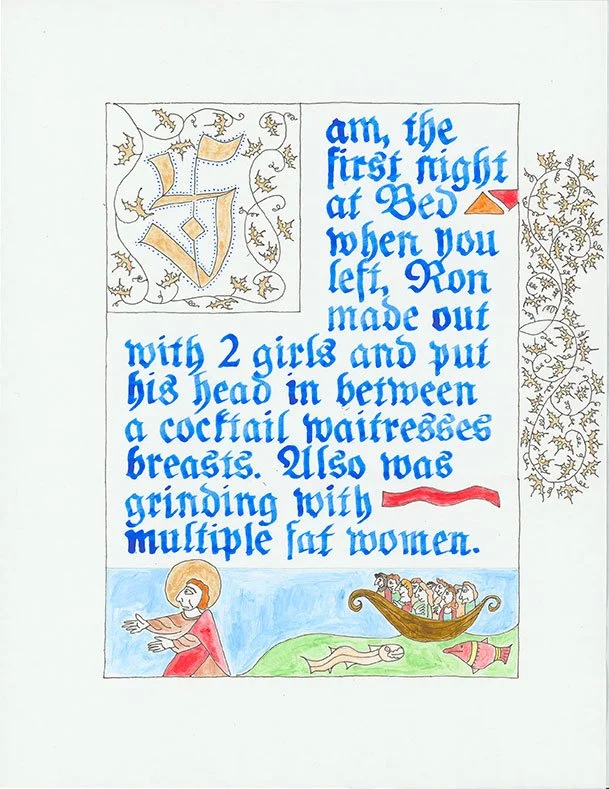 Sam, the
first night
at Bed
when you
left, Ron
made out
with 2 girls and put
his head in between
a cocktail waitresses
breasts. Also was
grinding with
multiple fat women.